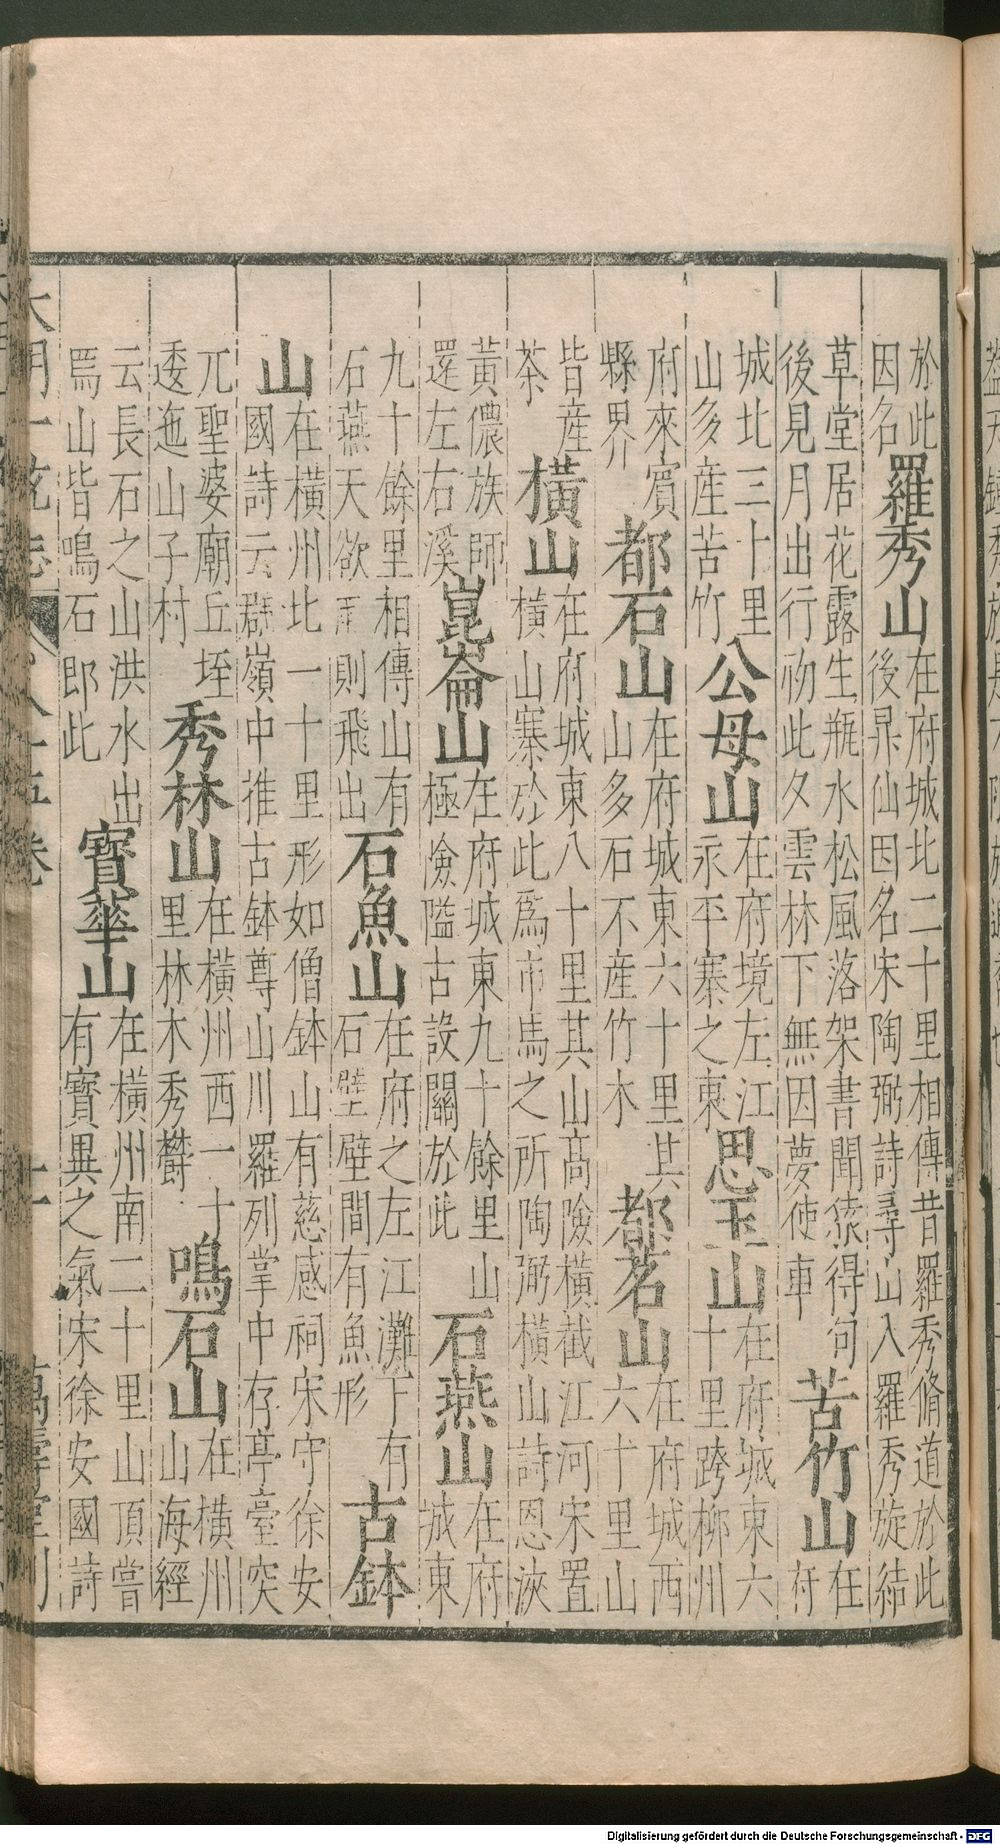 於此因名羅秀山在府城北二十里相傳昔羅秀脩道於此後昇仙因名宋陶弼詩尋山入羅秀旋結
草堂居花露生瓶水松風落架書聞猿得句後見月出行吻此夕雲林下無因夢使車苦竹山在府
城北三十里山多産苦竹公母山在府境左江永平寨之東思玉山在府城東六十里跨柳州
府來賓縣界都石山在府城東六十里其山多石不産竹木都茗山在府城西六十里山
皆産茶橫山在府城東八十里其山高險橫截江河宋置橫山寨於此爲市馬之所陶弼橫山詩恩浹
黃儂族師還左右溪崑崙山在府城東九十餘里山極險隘古設關於此石燕山在府城東
九十餘里相傳山有石燕天欲雨則飛出石魚山在府之左江灘下有石壁壁間有魚形古鉢
山在橫州北一十里形如僧鉢山有慈感祠宋守徐安國詩云群嶺中推古鉢尊山川羅列掌中存亭臺突
兀聖婆廟丘垤逶迤山子村秀林山在橫州西一十里林木秀欝鳴石山在橫州山海經
云長石之山洪水出焉山皆鳴石郎此寶華山在橫州南二十里山頂嘗有寶異之氣宋徐安國詩
大明一統志 八十五卷 萬壽堂刊
Digitalisierung gefördert durch die Deutsche Forschungsgemeinschaft - DFG